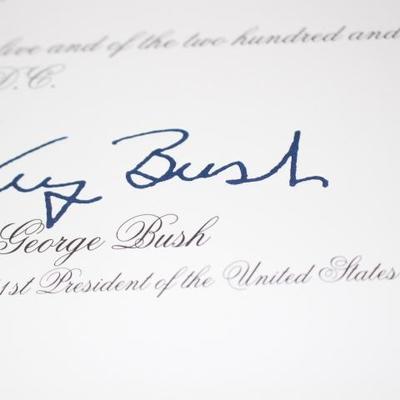 five and of the two hundred and
D.C.
Bush
George Bush
1st President of the United States